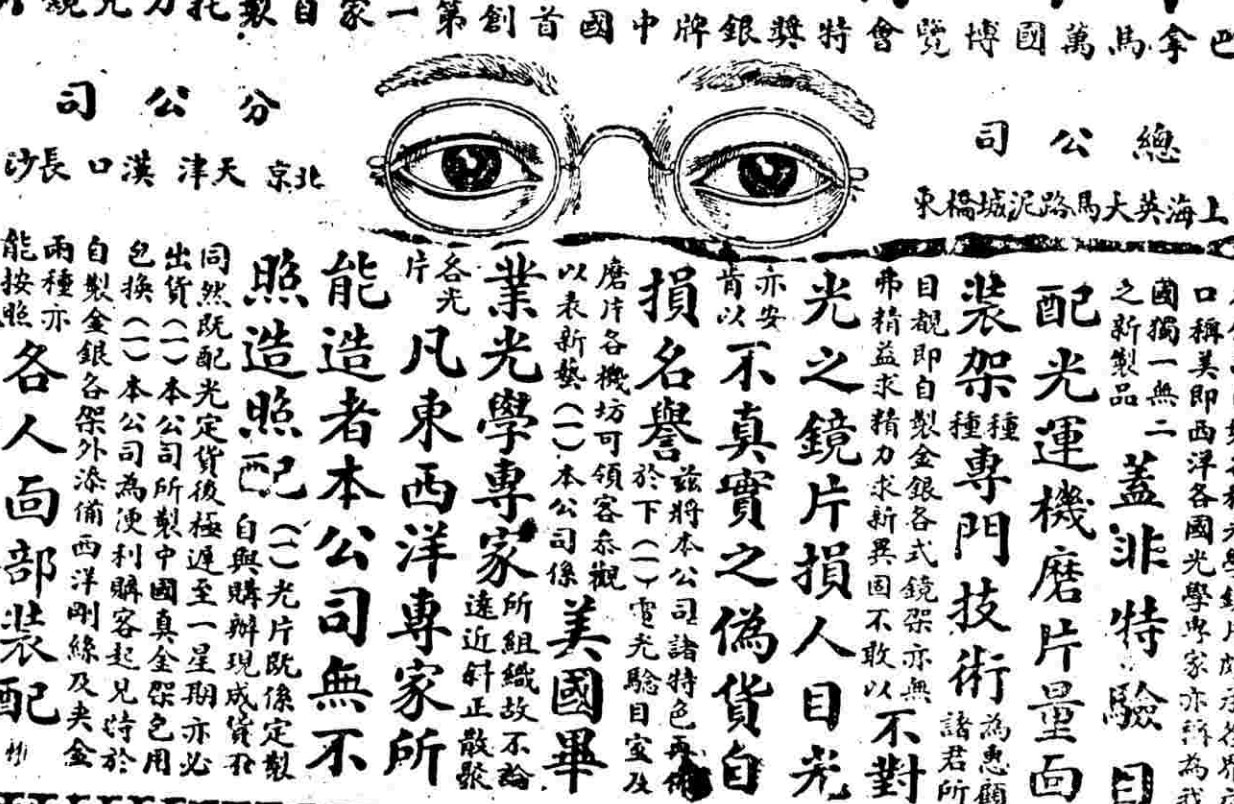 巴拿馬萬國博覽會特獎銀牌中國首創第一家自製托力克
總公司
上海英大馬路泥城橋東
分公司
北京天津漢口長沙
口稱美即西洋各國光學專家亦稱為我
國獨一無二
之新製品
蓋非特驗目
配光運機磨片量面
裝架種種專門技術
為惠顧
諸君所
目覩即自製金銀各式鏡架亦無
弗精益求精力求新異固不敢以
不對
光之鏡片損人目光
亦安
肯以
不真實之偽貨自
損名譽
茲將本公司諸特色再佈
於下（一）電光驗目室及
磨片各機坊可領客叅觀
以表新藝（一）本公司係
美國畢
業光學專家
所組織故不論
遠近斜正散聚
各光
片
凡東西洋專家所
能造者本公司無不
照造照配
（一）光片既係定製
自與購辦現成貨不
同然既配光定貨後極遲至一星期亦必
出貨（一）本公司所製中國真金架包用
包換（一）本公司為便利購客起見特於
自製金銀各架外添備西洋剛絲及夾金
兩種亦
能按照
各人面部裝配